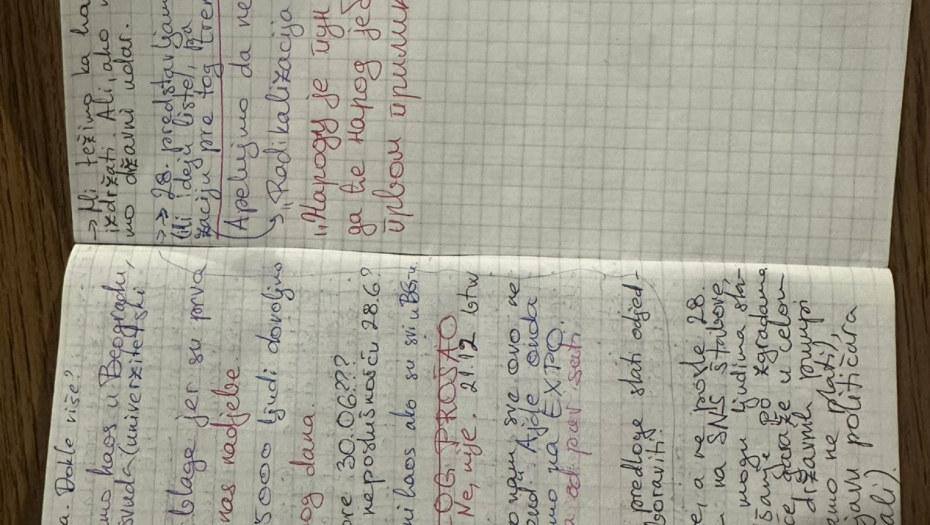 a. Dokle više?
mo haos u Beogradu,
svuda (univerzitetski
blage jer su prva
nas nadjebe.
5000 ljudi dovoljno
og dana.
pre 30.06???
neposlušnošću 28.6?
ni haos ako su svi u BG-u.
PROŠAO
Ne, nije. 21:12 btw
o nam sve ovo ne
Ajde onda
mo na EXPO.
a od par sati
predloge slati odjed-
boraviti.
e, a ne posle 28.
na SNS štabove,
mogu ljudima sla-
šanje po zgradama
ce garaže u celom
državnih pumpi
imo ne plati),
javu političara
ali)
→ Mi težimo ka
izdržati. Ali, ako
mo državni udar.
→→ 28. predstavljam
(ili ideju liste), za
zaciju pre tog tren
(Apelujmo da ne
→ „Radikalizacija
„Народу је пун
да ће народ јед
првом прилик